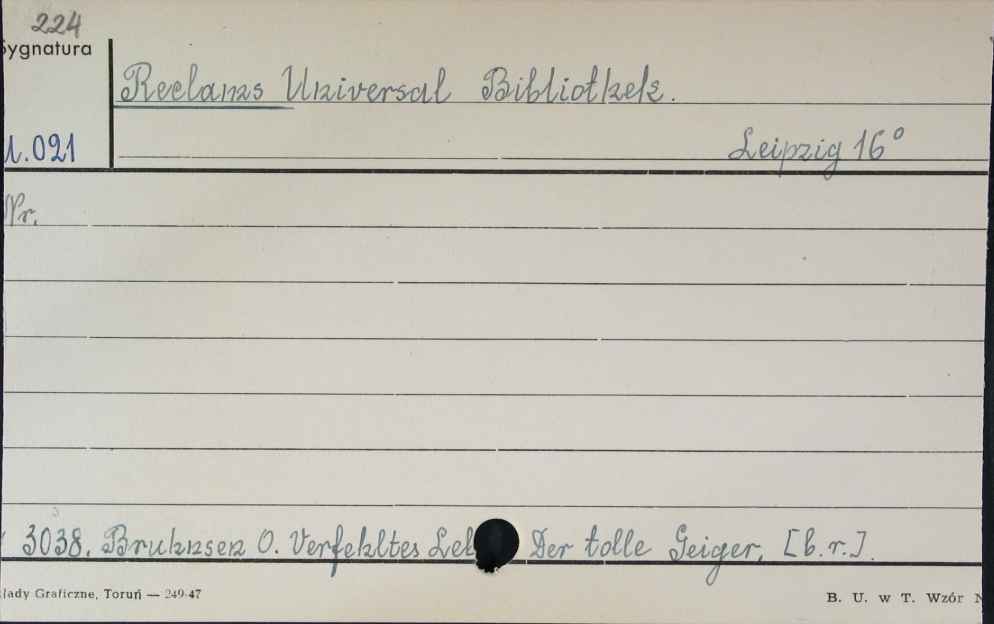 224
Sygnatura
Reclams Universal Bibliothek.
U.021
Leipzig 16°
Nr.
3038. Bruhnsen O. Verfehltes Leb Der tolle Geiger, [b.r.].
łady Graficzne, Toruń — 249-47
B. U. w T. Wzór N